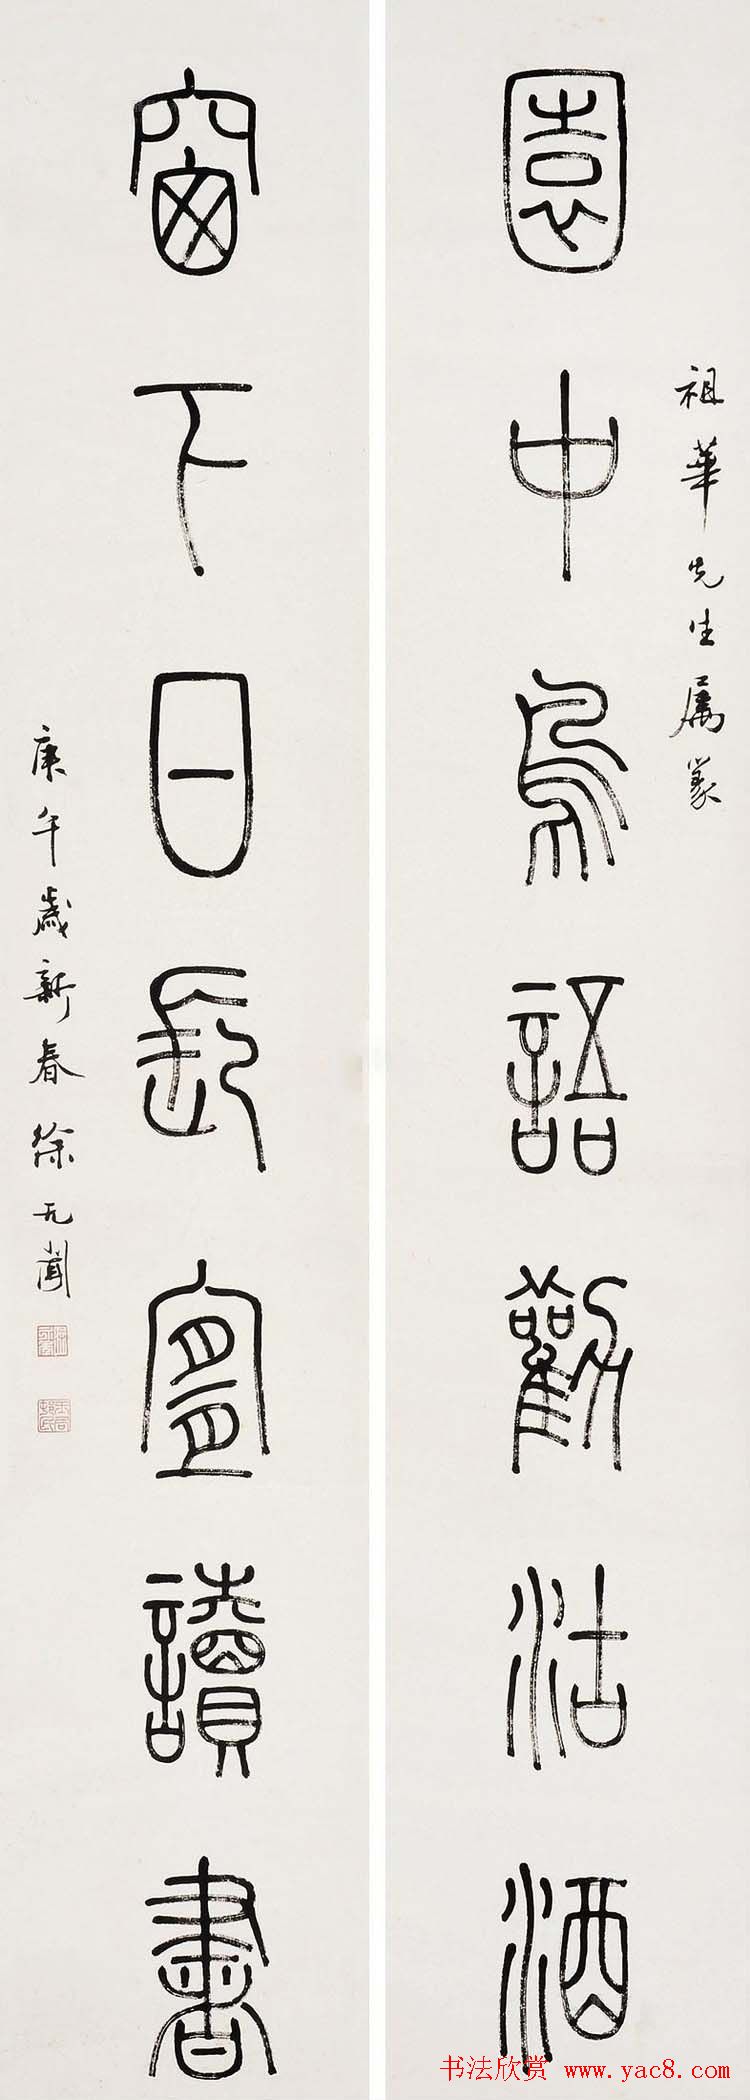 祖華先生屬篆
園中鳥語勸沽酒
窗下日長宜讀書
庚午歲新春徐无聞
书法欣赏 www.yac8.com